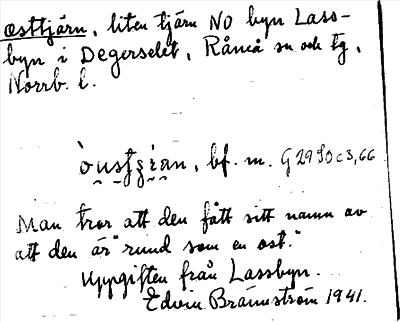 osttjärn, liten tjärn NO byn Lass-
byn i Degerselet, Råneå sn och tg,
Norrb. l.
òustʒían, bf. m. G 29 S0 c3,66
Man tror att den fått sitt namn av
att den är "rund som en ost."
Uppgiften från Lassbyn.
Edvin Brännström 1941.